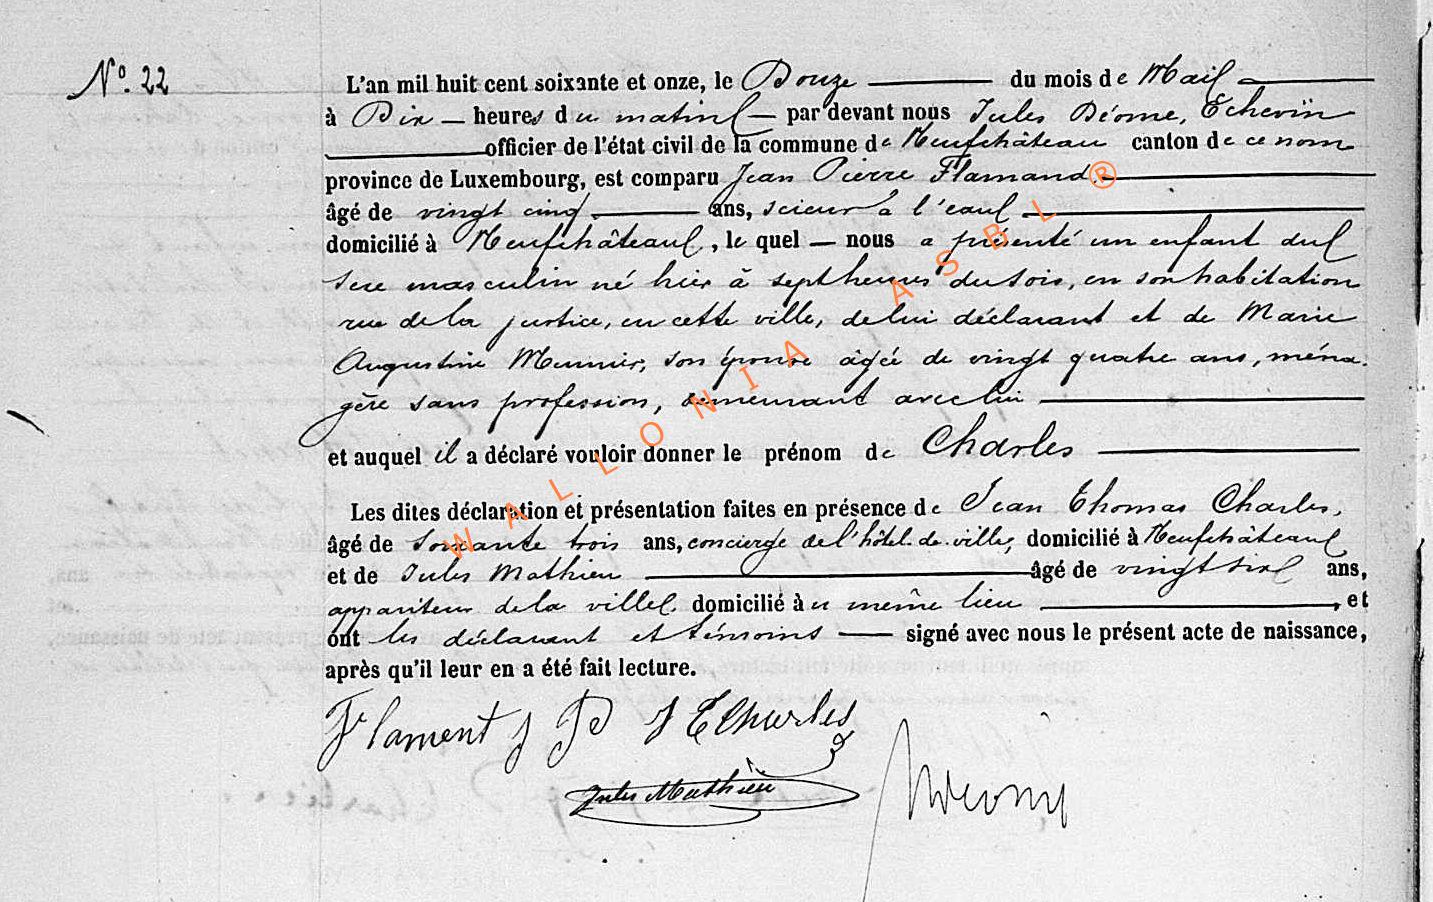 N° 22
L'an mil huit cent soixante et onze, le Douze du mois de Mai
à Dix heures du matin par devant nous Jules Déome, Echevin
officier de l'état civil de la commune de Neufchâteau canton de ce nom
province de Luxembourg, est comparu Jean Pierre Flamand
âgé de vingt cinq ans, scieur à l'eau
domicilié à Neufchâteau, le quel nous a présenté un enfant du
sexe masculin né hier à sept heures du soir, en son habitation
rue de la justice, en cette ville, de lui déclarant et de Marie
Augustine Meunier, son épouse âgée de vingt quatre ans, ména
gère sans profession, demeurant avec lui
et auquel il a déclaré vouloir donner le prénom de Charles
Les dites déclaration et présentation faites en présence de Jean Thomas Charles,
âgé de soixante trois ans, concierge de l'hôtel de ville, domicilié à Neufchâteau
et de Jules Mathieu âgé de vingt six ans,
appariteur de la ville domicilié au même lieu, et
ont les déclarant et témoins signé avec nous le présent acte de naissance,
après qu'il leur en a été fait lecture.
Flament J P J T Charles
Jules Mathieu
WALLONIA ASBL ®